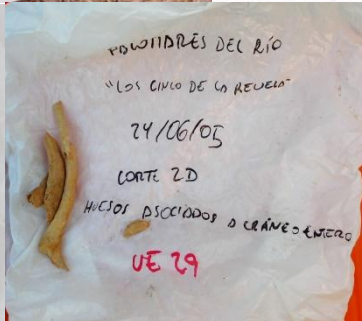 PALOMARES DEL RÍO
"LOS CINCO DE LA REVUELTA"
24/06/05
CORTE 2D
HUESOS ASOCIADOS A CRÁNEO ENTERO
UE 29